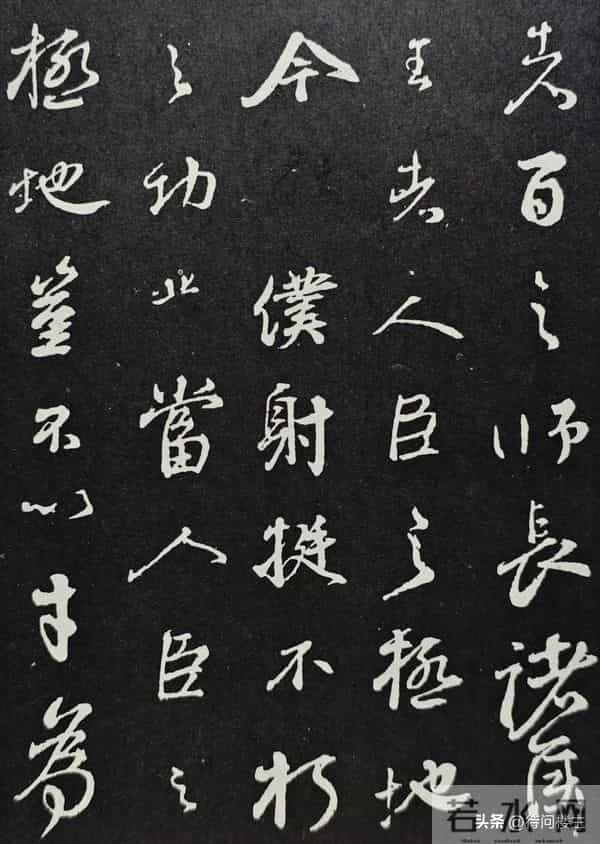 者百之师長諸侯
王者人臣之極地
今僕射挺不朽
之功业當人臣之
極地豈不以才為
若水网
头条 @待问楼主